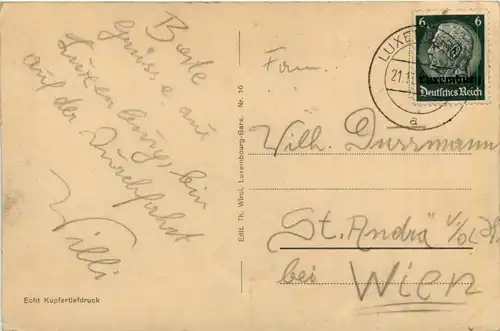 Beste
Grüsse aus
Luxemburg, bin
auf der
Durchfahrt
Willi
Echt Kupfertiefdruck
Edit. Th. Wirol, Luxembourg-Gare. Nr. 16
LUXEM
21.1
a
6 6
Luxemburg
Deutsches Reich
Wilh. Dussmann
St. Andrä
bei
Wien